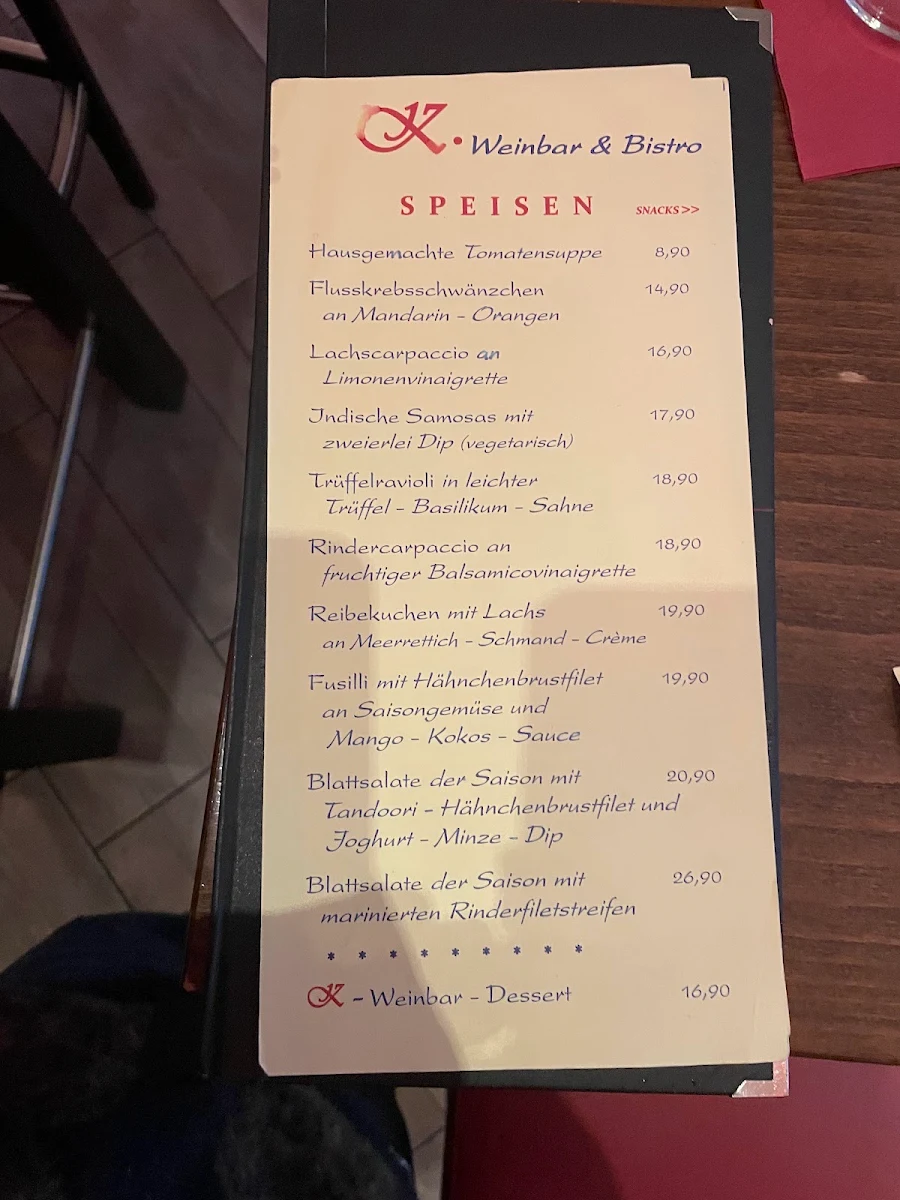 K. Weinbar & Bistro
SPEISEN SNACKS>>
Hausgemachte Tomatensuppe 8,90
Flusskrebsschwänzchen 14,90
an Mandarin - Orangen
Lachscarpaccio an 16,90
Limonenvinaigrette
Indische Samosas mit 17,90
zweierlei Dip (vegetarisch)
Trüffelravioli in leichter 18,90
Trüffel - Basilikum - Sahne
Rindercarpaccio an 18,90
fruchtiger Balsamicovinaigrette
Reibekuchen mit Lachs 19,90
an Meerrettich - Schmand - Crème
Fusilli mit Hähnchenbrustfilet 19,90
an Saisongemüse und
Mango - Kokos - Sauce
Blattsalate der Saison mit 20,90
Tandoori - Hähnchenbrustfilet und
Joghurt - Minze - Dip
Blattsalate der Saison mit 26,90
marinierten Rinderfiletstreifen
* * * * * * * * *
K - Weinbar - Dessert 16,90